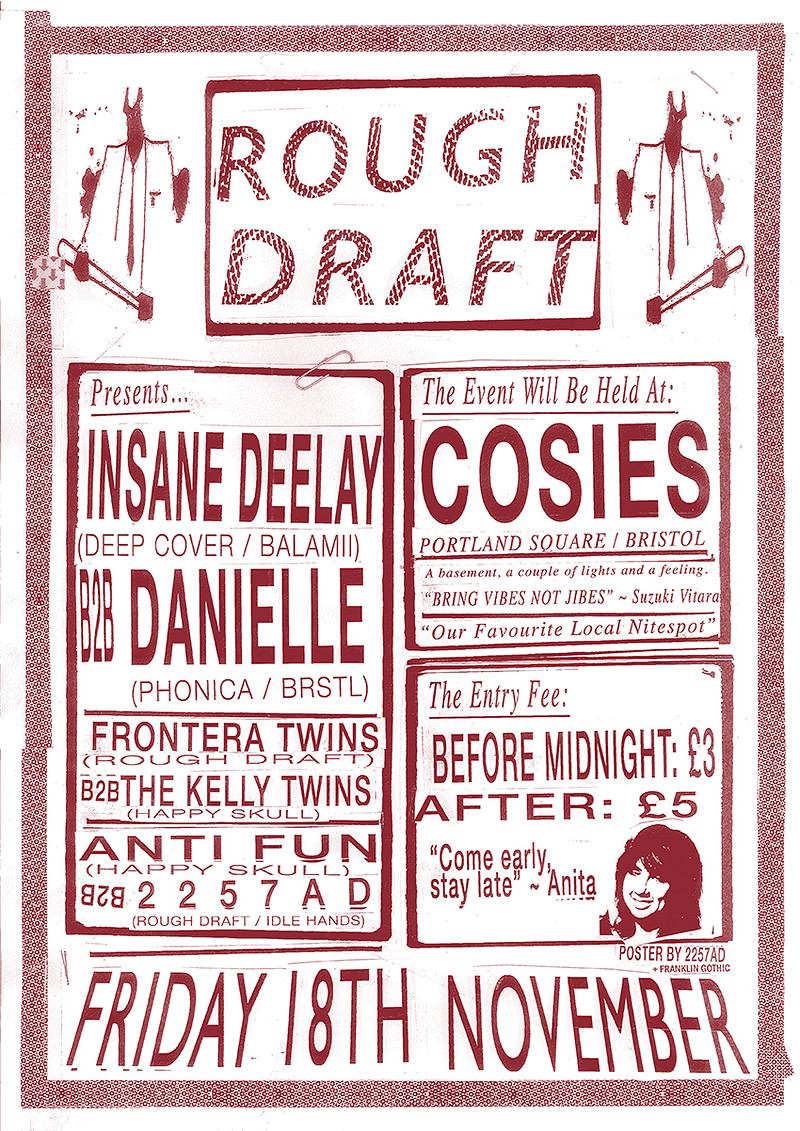 ROUGH
DRAFT
Presents...
INSANE DEELAY
(DEEP COVER / BALAMII)
B2B DANIELLE
(PHONICA / BRSTL)
FRONTERA TWINS
(ROUGH DRAFT)
B2B THE KELLY TWINS
(HAPPY SKULL)
ANTI FUN
(HAPPY SKULL)
B2B 2257AD
(ROUGH DRAFT / IDLE HANDS)
The Event Will Be Held At:
COSIES
PORTLAND SQUARE / BRISTOL
A basement, a couple of lights and a feeling.
"BRING VIBES NOT JIBES" ~ Suzuki Vitara
"Our Favourite Local Nitespot"
The Entry Fee:
BEFORE MIDNIGHT: £3
AFTER: £5
"Come early,
stay late" ~ Anita
POSTER BY 2257AD
+ FRANKLIN GOTHIC
FRIDAY 18TH NOVEMBER